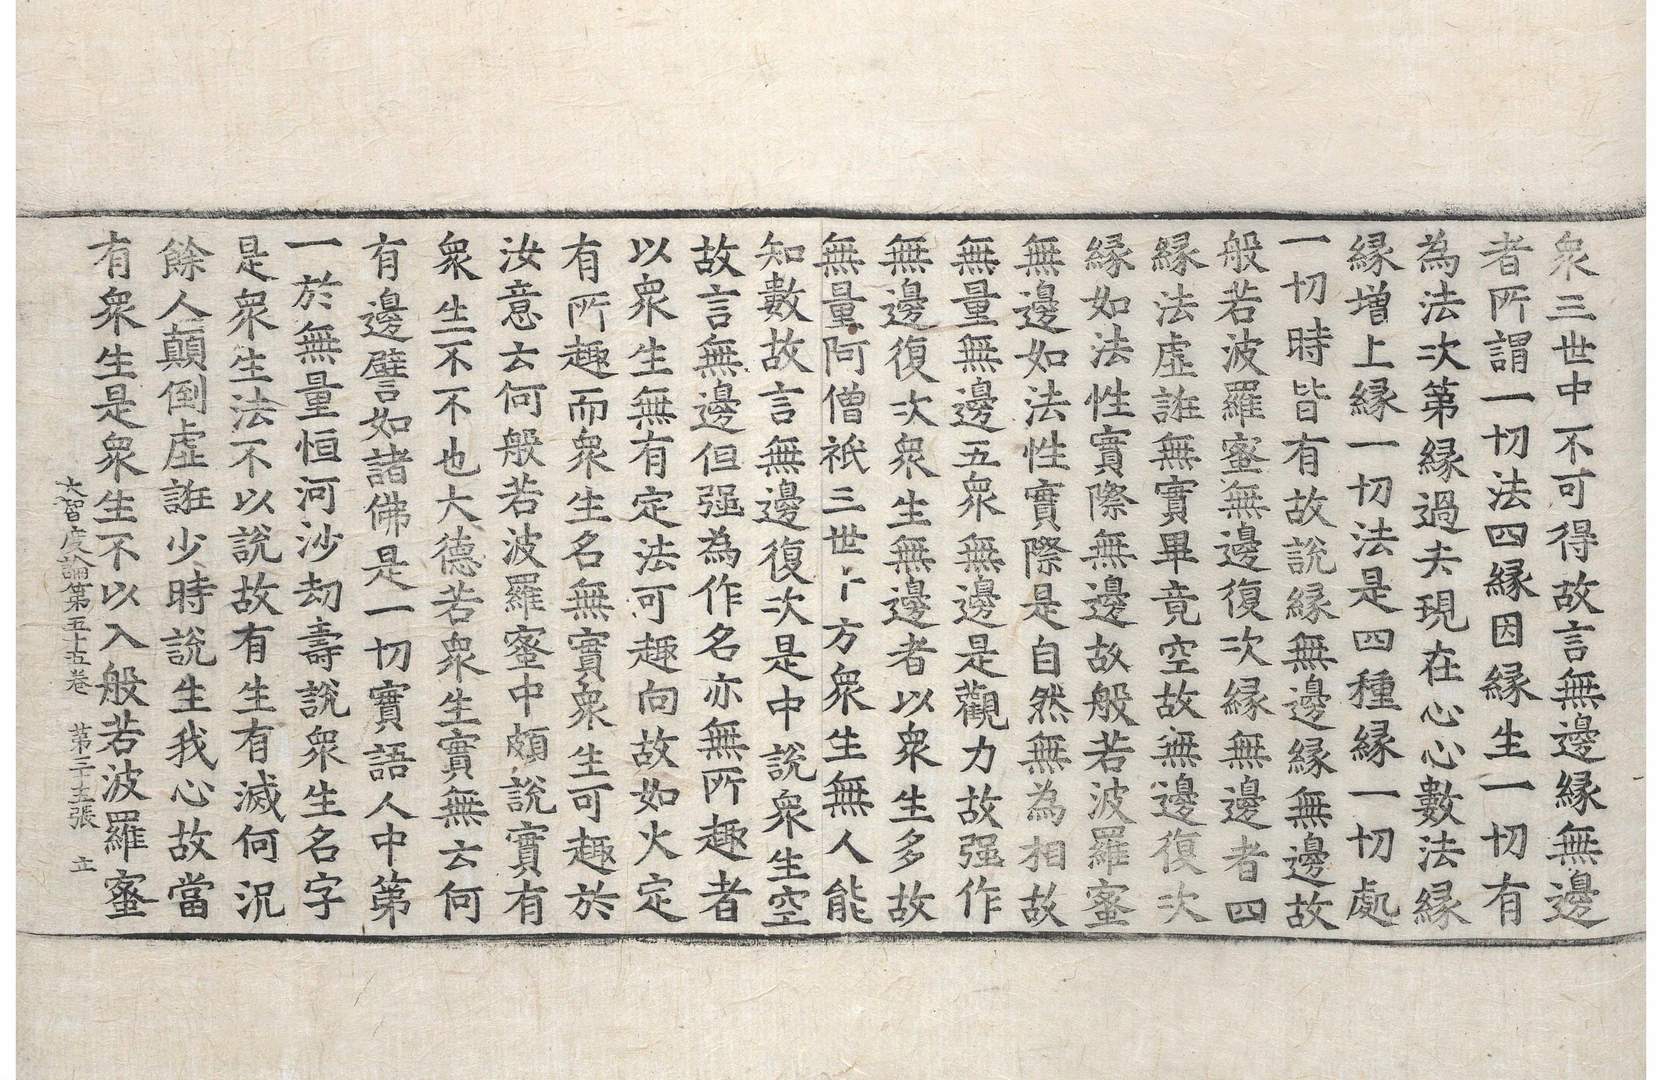 衆三世中不可得故言無邊縁無邊
者所謂一切法四縁因縁生一切有
為法次第縁過去現在心心數法縁
縁増上縁一切法是四種縁一切處
一切時皆有故說縁無邊縁無邊故
般若波羅蜜無邊復次縁無邊者四
縁法虛誑無實畢竟空故無邊復次
縁如法性實際無邊故般若波羅蜜
無邊如法性實際是自然無為相故
無量無邊五衆無邊是觀力故强作
無邊復次衆生無邊者以衆生多故
無量阿僧祇三世十方衆生無人能
知數故言無邊復次是中說衆生空
故言無邊但强為作名亦無所趣者
以衆生無有定法可趣向故如火定
有所趣而衆生名無實衆生可趣於
汝意云何般若波羅蜜中頗說實有
衆生不不也大德若衆生實無云何
有邊譬如諸佛是一切實語人中第
一於無量恒河沙劫壽說衆生名字
是衆生法不以說故有生有滅何況
餘人顛倒虛誑少時說生我心故當
有衆生是衆生不以入般若波羅蜜
大智度論第五十五卷 第三十五張 立